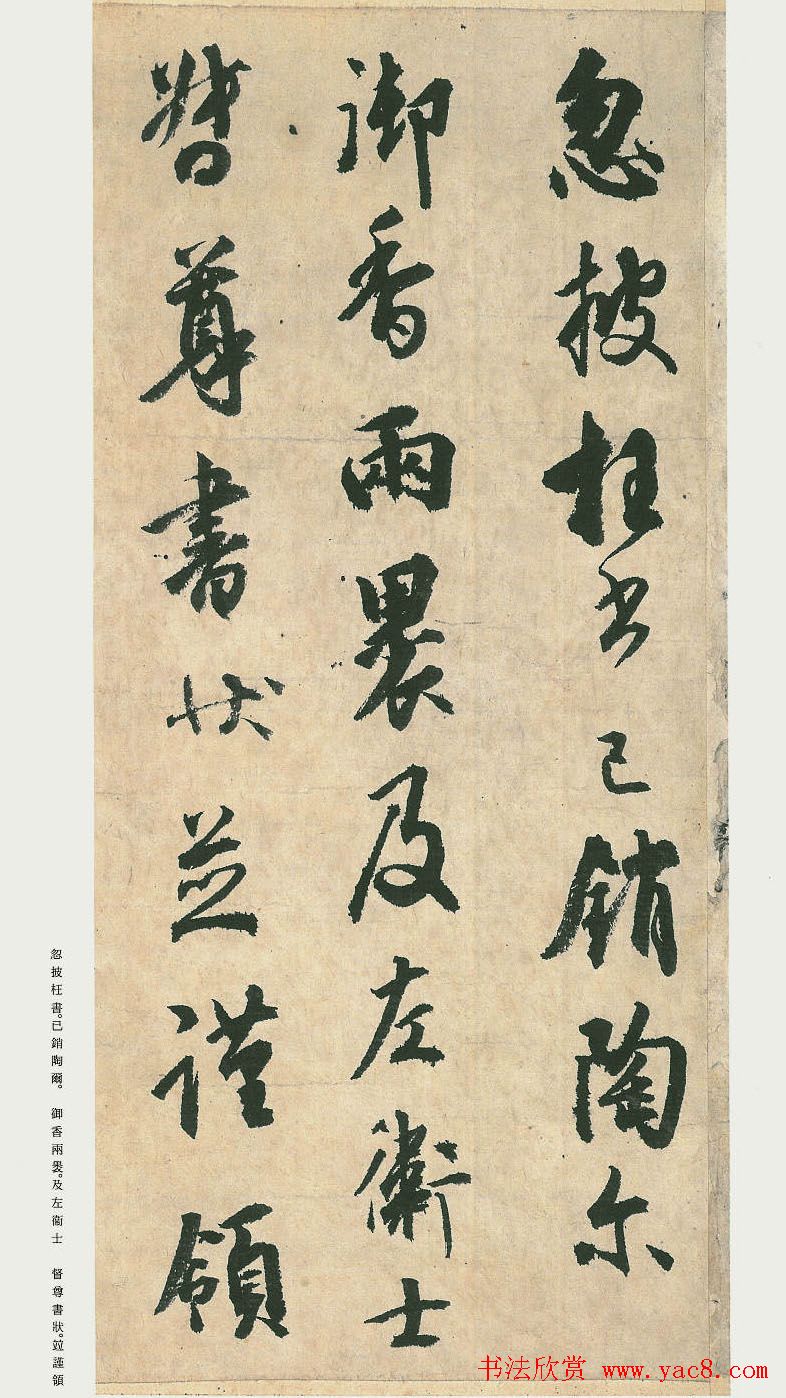 忽披枉书已銷陶尔
御香兩褁及左衞士
督尊書状並謹領
忽披枉書。已銷陶爾。 御香兩褁。及左衞士 督尊書狀。竝謹領
书法欣赏 www.yac8.com